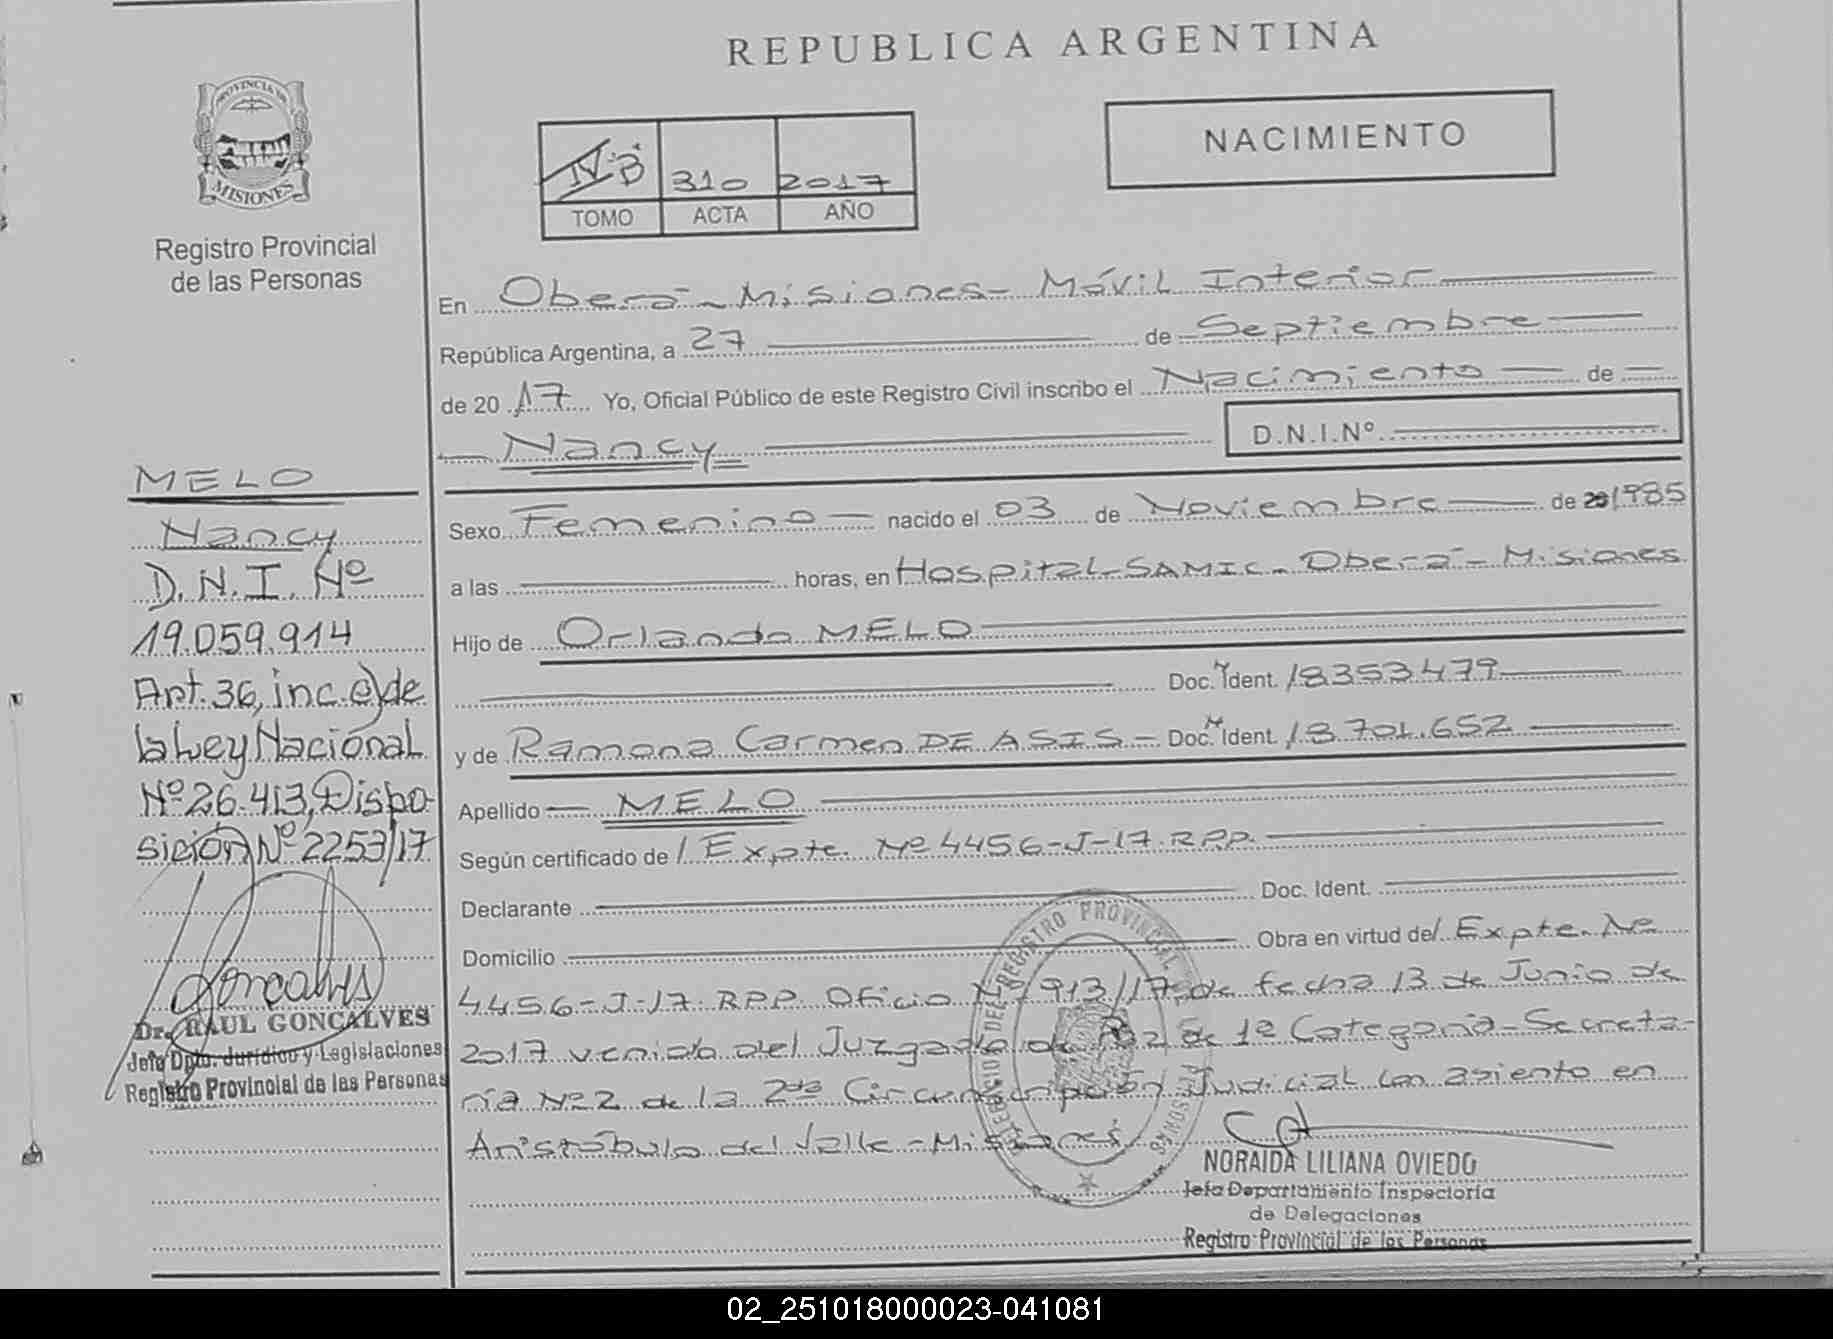 REPUBLICA ARGENTINA
PROVINCIA DE
MISIONES
Registro Provincial
de las Personas
NACIMIENTO
IV·B 310 2017
TOMO ACTA AÑO
En Oberá - Misiones - Móvil Interior
República Argentina, a 27 de Septiembre
de 20 17 Yo, Oficial Público de este Registro Civil inscribo el Nacimiento de
Nancy D.N.I.Nº
MELO
Nancy
D.N.I. Nº
19.059.914
Art. 36, inc. c) de
la Ley Nacional
Nº 26.413, Dispo-
sición Nº 2253/17
Dr. RAUL GONCALVES
Jefe Dpto. Jurídico y Legislaciones
Registro Provincial de las Personas
Sexo Femenino nacido el 03 de Noviembre de 1985
a las horas, en Hospital SAMIC - Oberá - Misiones
Hijo de Orlando MELO
Doc. Ident. 18353479
y de Ramona Carmen DE ASIS - Doc. Ident. 18.701.652
Apellido MELO
Según certificado de / Expte. Nº 4456-J-17. RPP.
Declarante Doc. Ident.
Domicilio Obra en virtud de / Expte. Nº
4456-J-17. RPP. Oficio Nº 913/17, de fecha 13 de Junio de
2017 venido del Juzgado de Paz de 1ª Categoria - Secreta-
ría Nº 2 de la 2da Circunscripción Judicial con asiento en
Aristóbulo del Valle - Misiones
REGISTRO PROVINCIAL
PERSONAS
NORAIDA LILIANA OVIEDO
Jefa Departamento Inspectoría
de Delegaciones
Registro Provincial de las Personas
02_251018000023-041081